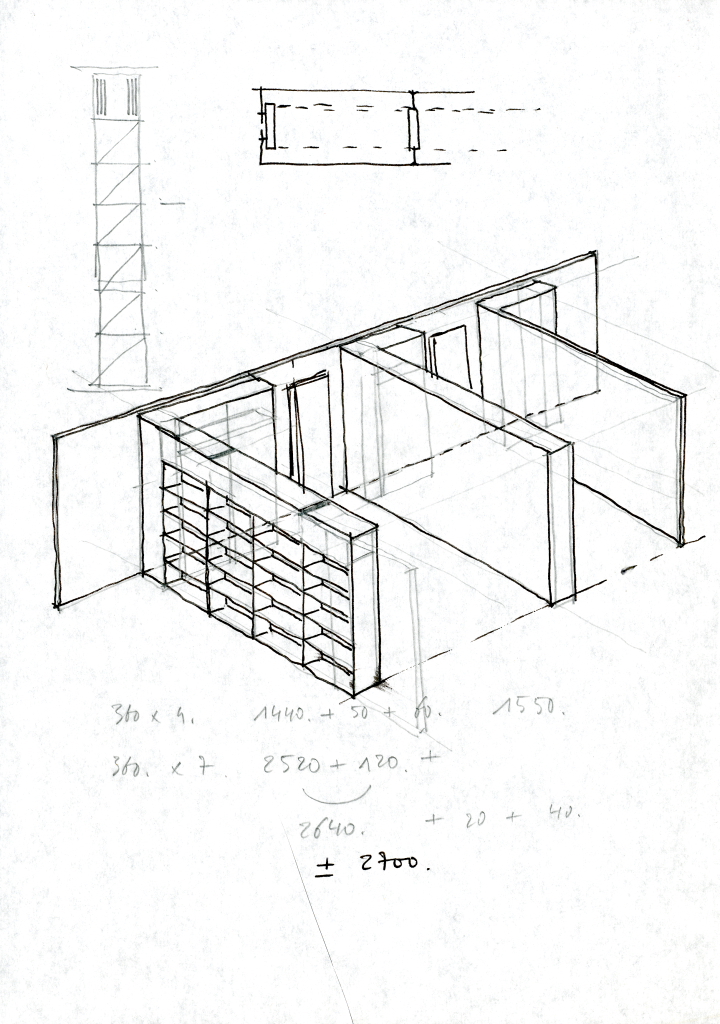 360 x 4. 1440. + 50 + 60. 1550.
360. x 7. 2520 + 120. +
2640. + 20 + 40.
± 2700.